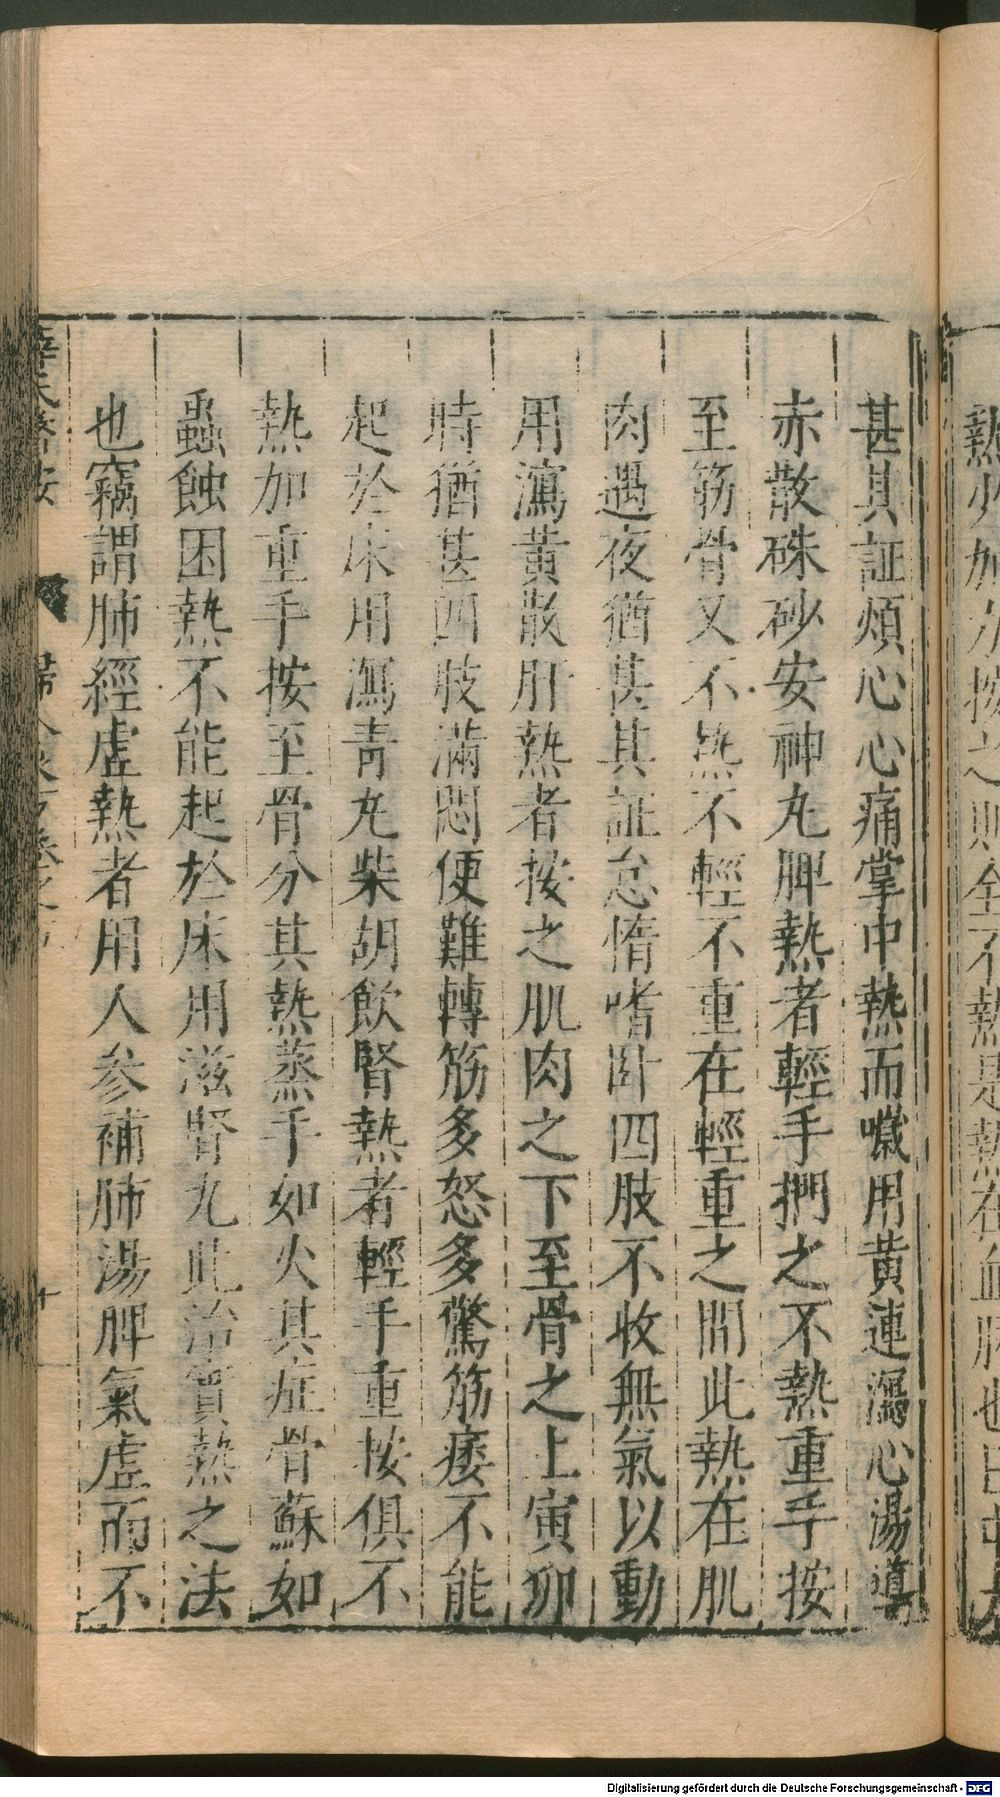 甚其証煩心心痛掌中熱而噦用黃連瀉心湯導
赤散硃砂安神丸脾熱者輕手捫之不熱重手按
至筋骨又不热不輕不重在輕重之間此熱在肌
肉遇夜猶甚其証怠惰嗜卧四肢不收無氣以動
用瀉黃散肝熱者按之肌肉之下至骨之上寅卯
時猶甚四肢滿悶便難轉筋多怒多驚筋痿不能
起於床用瀉青丸柴胡飲腎熱者輕手重按俱不
熱加重手按至骨分其熱蒸手如火其症骨蘇如
蟲蝕困熱不能起於床用滋腎丸此治實熱之法
也竊謂肺經虛熱者用人參補肺湯脾氣虛而不
Digitalisierung gefördert durch die Deutsche Forschungsgemeinschaft - DFG